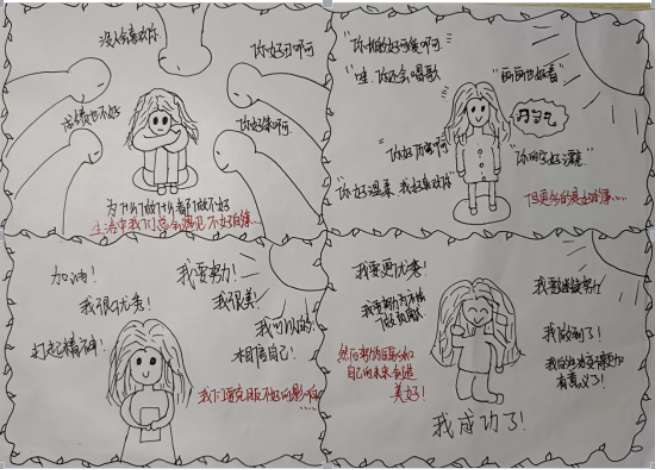 没人会喜欢你
你好丑啊
成绩也不好
你好笨啊
为什么做什么都做不好
生活中我们总会遇见不好的事…
"你抱的好可爱啊"
"哇,你还会唱歌
"画画也好看"
"你好厉害啊"
"你的字好漂亮"
"你好温柔,我好喜欢你"
但更多的是好的事……
加油!
我要努力!
我很优秀!
我很美!
我可以的!
打起精神!
相信自己!
我们要克服不好的影响
我要更优秀!
我要继续努力
我做到了!
然后努力为国家和
自己的未来创造
美好!
有意义了!
我成功了!